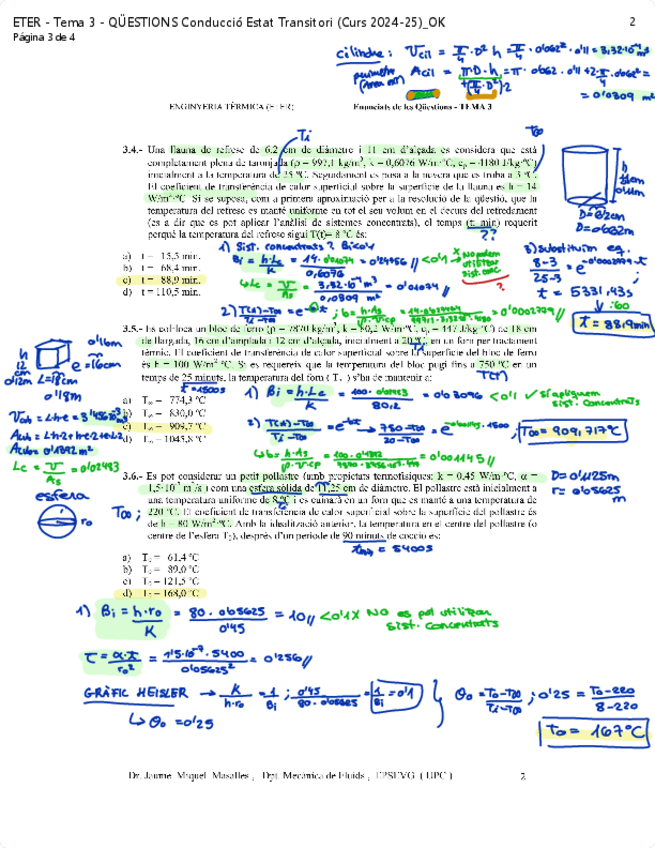 ETER - Tema 3 - QÜESTIONS Conducció Estat Transitori (Curs 2024-25)_OK
2
Página 3 de 4
cilindre: Vcil = π/4·D²·h = π/4·0'062²·0'11 = 3,32·10⁻⁴ m³
Acil = π·D·h + (π/4·D²)·2 = π·0'062·0'11 + 2·π/4·0'062² = 0'0309 m²
ENGINYERIA TÈRMICA (ETER)
Enunciats de les Qüestions - TEMA 3
Ti
T∞
3.4.- Una llauna de refresc de 6,2 cm de diàmetre i 11 cm d'alçada es considera que està
completament plena de taronjada (ρ = 997,1 kg/m³, k = 0,6076 W/m·°C, cp = 4180 J/kg·°C)
inicialment a la temperatura de 25 °C. Seguidament es posa a la nevera que es troba a 3 °C.
El coeficient de transferència de calor superficial sobre la superfície de la llauna és h = 14
W/m²·°C. Si se suposa, com a primera aproximació per a la resolució de la qüestió, que la
temperatura del refresc es manté uniforme en tot el seu volum en el decurs del refredament
(es a dir que es pot aplicar l'anàlisi de sistemes concentrats), el temps (t, min) requerit
perquè la temperatura del refresc sigui T(t)= 8 °C és:
h
11cm
0'11m
D=6'2cm
D=0'062m
??
a) t = 15,3 min.
b) t = 68,4 min.
c) t = 88,9 min.
d) t = 110,5 min.
1) Sist. concentrats? Bi<0'1
Bi = h·Lc/k = 14·0'01074/0,6076 = 0'24756 // <0'1 x No podem utilitzar sist. conc.
Lc = V/As = 3,32·10⁻⁴ m³/0,0309 m² = 0'01074 //
?
2) T(t)-T∞/Ti-T∞ = e^-bt; b = h·As/ρ·V·cp = = 0'0002779 //
3) substituim eq.
8-3/25-3 = e^-0'0002779·t
t = 5331,43s
:60
t = 88,9min
3.5.- Es col·loca un bloc de ferro (ρ = 7870 kg/m³, k = 80,2 W/m·°C, cp = 447 J/kg·°C) de 18 cm
de llargada, 16 cm d'amplada i 12 cm d'alçada, inicialment a 20 °C, en un forn per tractament
tèrmic. El coeficient de transferència de calor superficial sobre la superfície del bloc de ferro
és h = 100 W/m²·°C. Si es requereix que la temperatura del bloc pugi fins a 750 °C en un
temps de 25 minuts, la temperatura del forn ( T∞ ) s'ha de mantenir a:
Ti
T(t)
t=1500s
h
12cm
0'12m
0'16m
e=16cm
L=18cm
0'18m
a) T∞ = 774,3 °C
b) T∞ = 830,0 °C
c) T∞ = 909,7 °C
d) T∞ = 1045,8 °C
Lc = V/As = 0'02433
1) Bi = h·Lc/k = 100·0'02433/80,2 = 0'03096 <0'1 ✓ sí apliquem sist. concentrats
2) T(t)-T∞/Ti-T∞ = e^-bt → 750-T∞/20-T∞ = e^-0'001145·1500; T∞ = 909,717°C
b = h·As/ρ·V·cp = = 0'001145 //
3.6.- Es pot considerar un petit pollastre (amb propietats termofísiques: k = 0,45 W/m·°C, α =
1,5·10⁻⁷ m²/s) com una esfera sòlida de 11,25 cm de diàmetre. El pollastre està inicialment a
una temperatura uniforme de 8 °C i es cuinarà en un forn que es manté a una temperatura de
220 °C. El coeficient de transferència de calor superficial sobre la superfície del pollastre és
de h = 80 W/m²·°C. Amb la idealització anterior, la temperatura en el centre del pollastre (o
centre de l'esfera T₀), després d'un període de 90 minuts de cocció és:
esfera
r₀
T∞;
D=0'1125m
r=0'05625 m
= 5400s
a) T₀ = 61,4 °C
b) T₀ = 89,0 °C
c) T₀ = 121,5 °C
d) T₀ = 168,0 °C
1) Bi = h·r₀/k = 80·0'05625/0'45 = 10 // <0'1 X NO es pot utilitzar sist. concentrats
τ = α·t/r₀² = 1'5·10⁻⁷·5400/0'05625² = 0'256 //
GRÀFIC HEISLER → k/h·r₀ = 1/Bi; 0'45/80·0'05625 = 1/Bi = 0'1
↳ θ₀ = 0'25
θ₀ = T₀-T∞/Ti-T∞; 0'25 = T₀-220/8-220
T₀ = 167°C
Dr. Jaume Miquel Masalles , Dpt. Mecànica de Fluids , EPSEVG ( UPC )
2